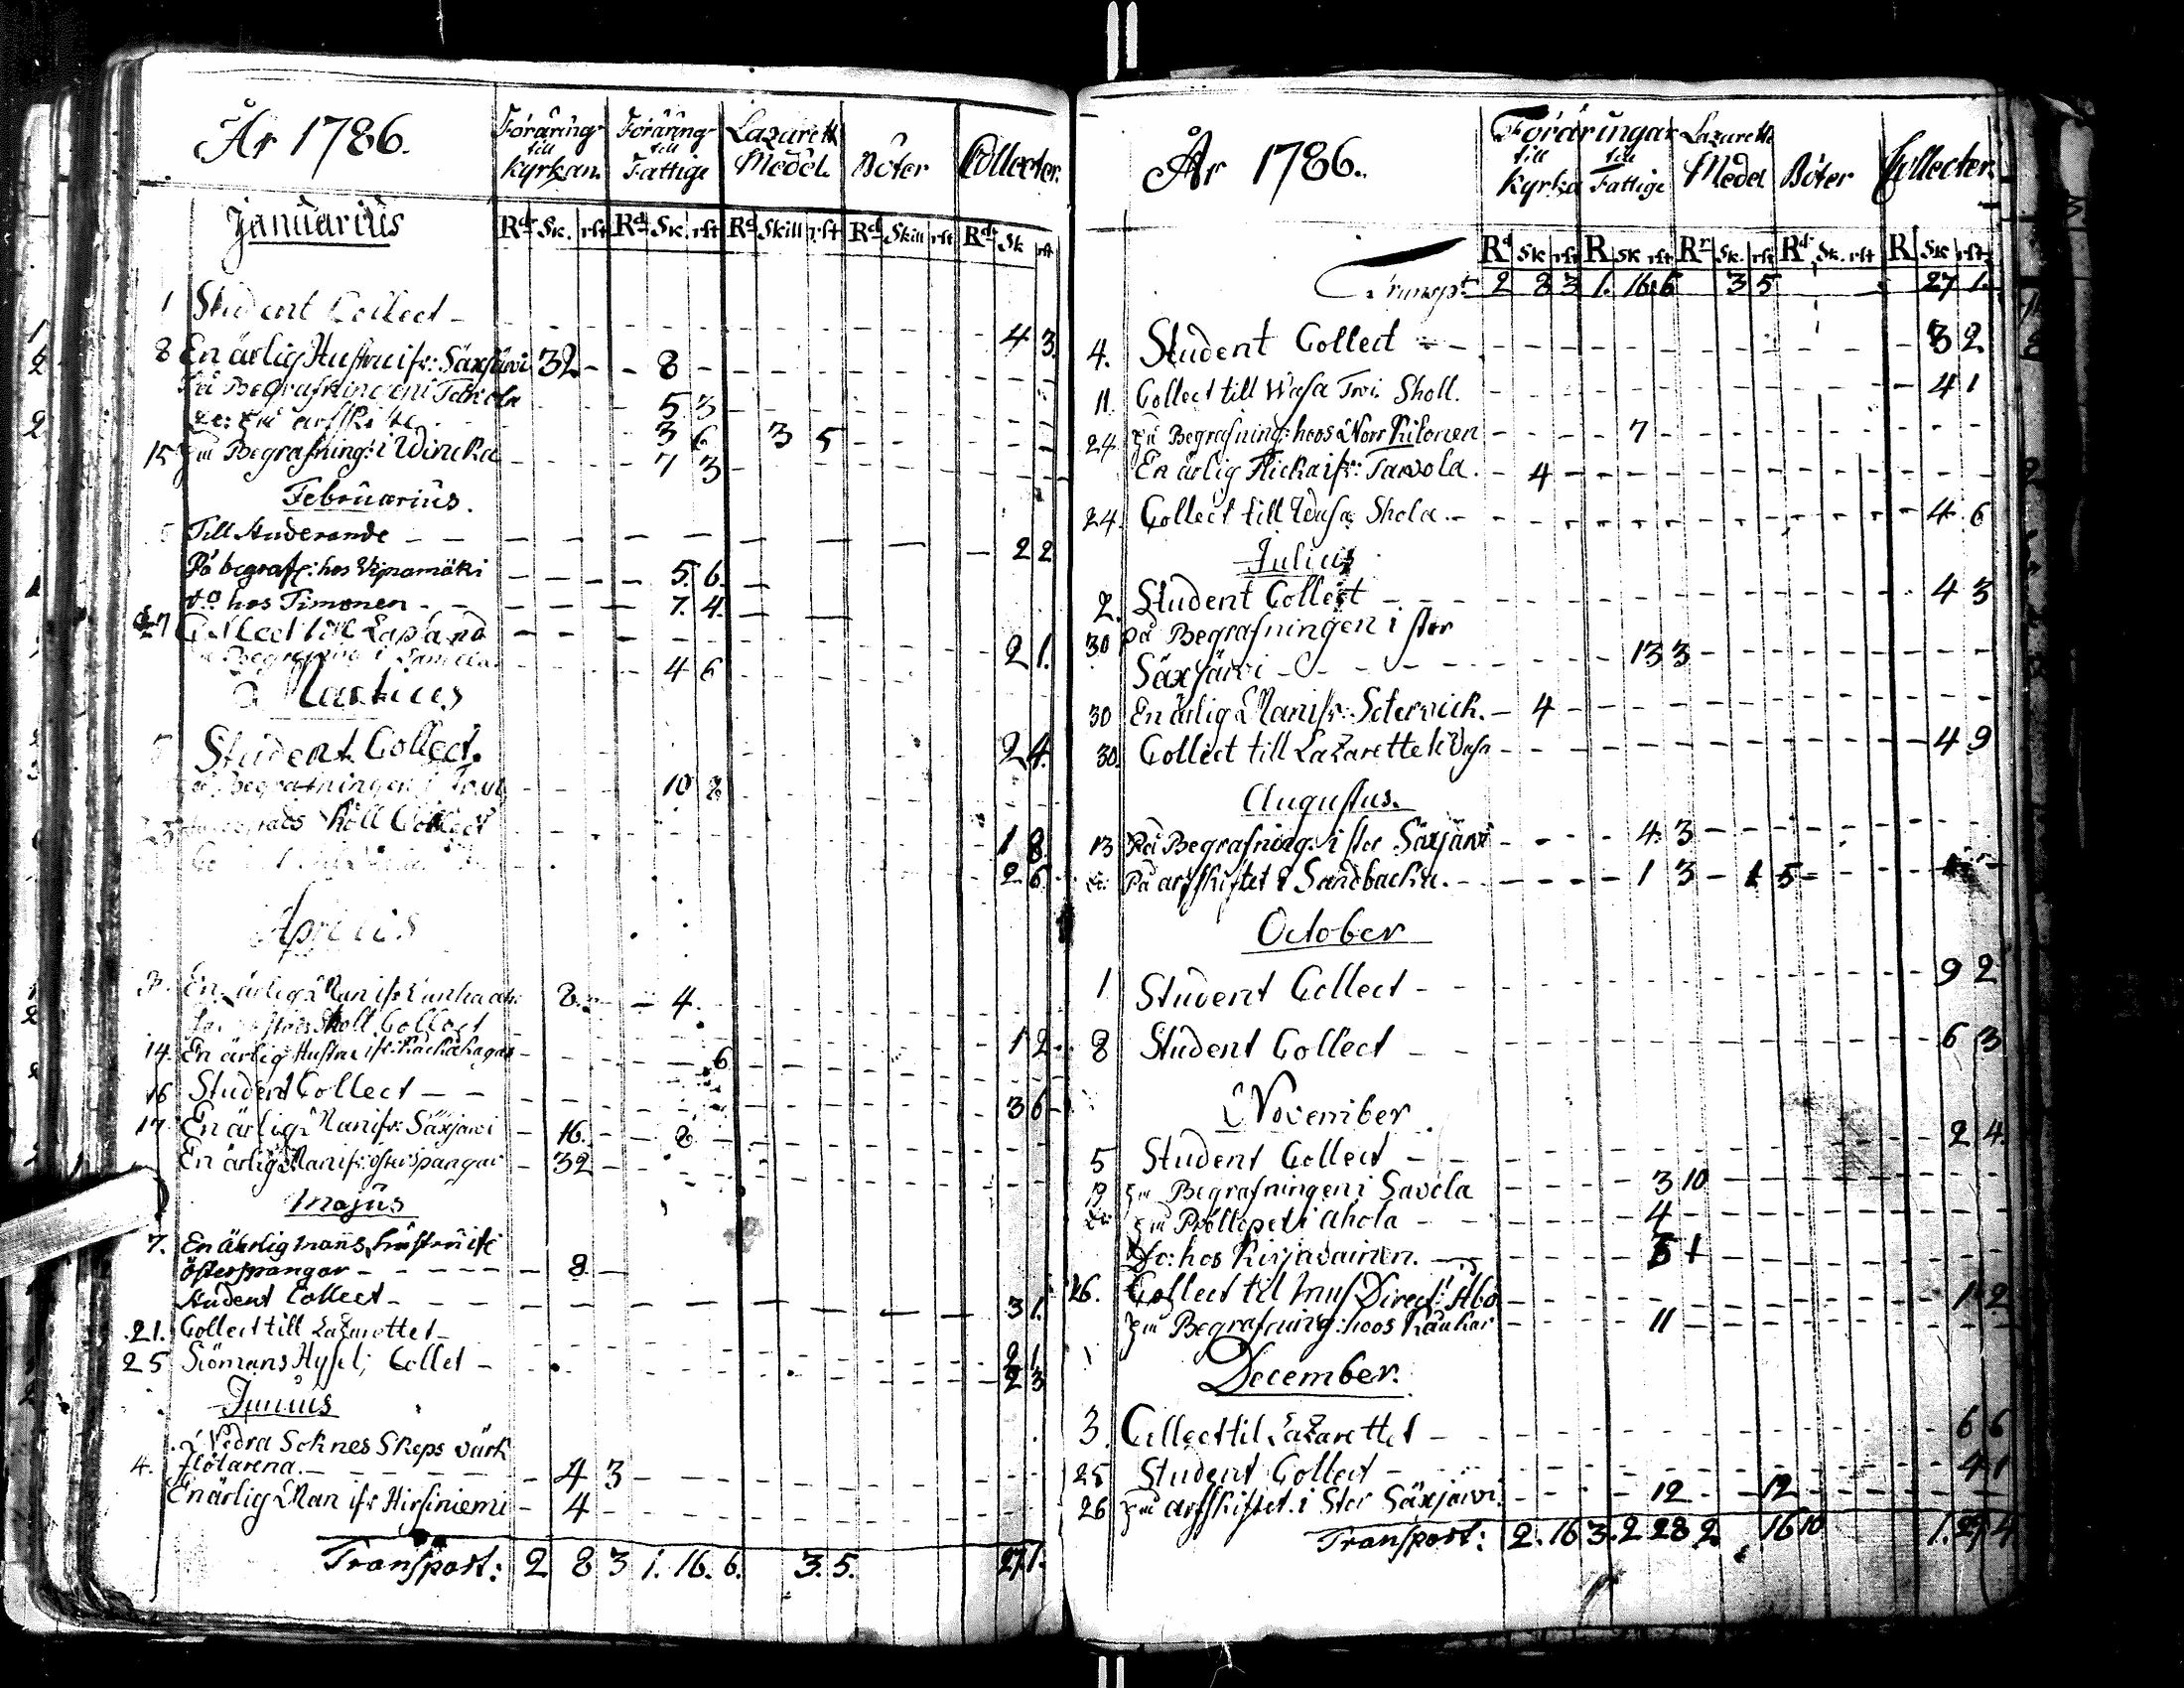 År 1786. Föräring till Kyrkan. Föräring till Fattige Lazaretts Medel. Böter Collecter.
Januarius Rd Sk. rst Rd Sk rst Rd Skill rst Rd Skill rst Rd Sk rst
1 Student Collect - 4 3.
8 En ärlig Hustru ifr: Säxjärvi 32 - - 8
På Begrafningen i Tokola 5 3
3 6 3 5
15 På Begrafning: i Wincka 7 3
Februarius.
Till Studerande - - 2 2
På begrafn: hos Vipnamäki 5. 6.
do hos Timonen 7. 4.
27 Collect till Lapland 2 1.
4 6
Martius
Student Collect. 2 4.
på Begrafningen i 10 8
Skoll Collect 1 8
2 6.
Aprilis
3. En ärlig Man ifr 8. - 4.
Skoll Collect 1 2.
14. En ärlig Hustru ifr: 6
16 Student Collect - - 3 6
17 En ärlig Man ifr: Säxjärvi - 16. - - 8
En ärlig Man ifr: österspangar - 32
Majus
7. En ährlig manns hustru ifr
österspangar - 8.
Student Collect - 3 1.
21. Collect till Lazarettet - 2 1
25 Siömans Collet - 2 3
Junius
Nedra Soknes Skeps värk
4. flötarena. - 4 3
En ärlig Man ifr Hirsiniemi - 4
Transport: 2 8 3 1. 16. 6. 3. 5. 27. 1.
År 1786. Föräringar till Kyrka till Fattige Lazaretts Medel Böter Collecter.
Rd Sk rst R Sk rst Rr Sk. rst Rd Sk. rst R Sk rst
Transpt 2 8 3 1. 16. 6 3 5 27 1.
4. Student Collect - 3 2.
11. Collect till Wasa Skoll. 4 1
24. på Begrafning: hoos Norr Kulonen 7
En ärlig Flicka ifr: Tarvola. - 4
24. Collect till Wasa Skola. 4. 6
Julius
2. Student Collect 4 3
30 på Begrafningen i stor
Säxjärvi - 13 3
30 En ärlig Man ifr: Setervick. - 4
30. Collect till Lazarettet i Wasa 4 9
Augustus.
13 På Begrafning: i stor Säxjärvi 4. 3
do: På arfskiftet i Sandbacka. 1 3 - 1 5
October
1 Student Collect - 9 2
8 Student Collect 6 3
November.
5 Student Collect - 2 4.
på Begrafningen i Savola 3 10
do på Bröllopet i Ahola 4
Do: hos Kirjavainen. 5 1
26. Collect til Direct: Åbo 1 2
på Begrafning: hoos Kauhar 11
December.
3. Collect til Lazarettet - 6 6
25 Student Collect - 4 1
26 på arfskiftet i Stor Säxjärvi. 12 12
Transport: 2. 16 3. 2 28 2. 16 10 1. 29 4